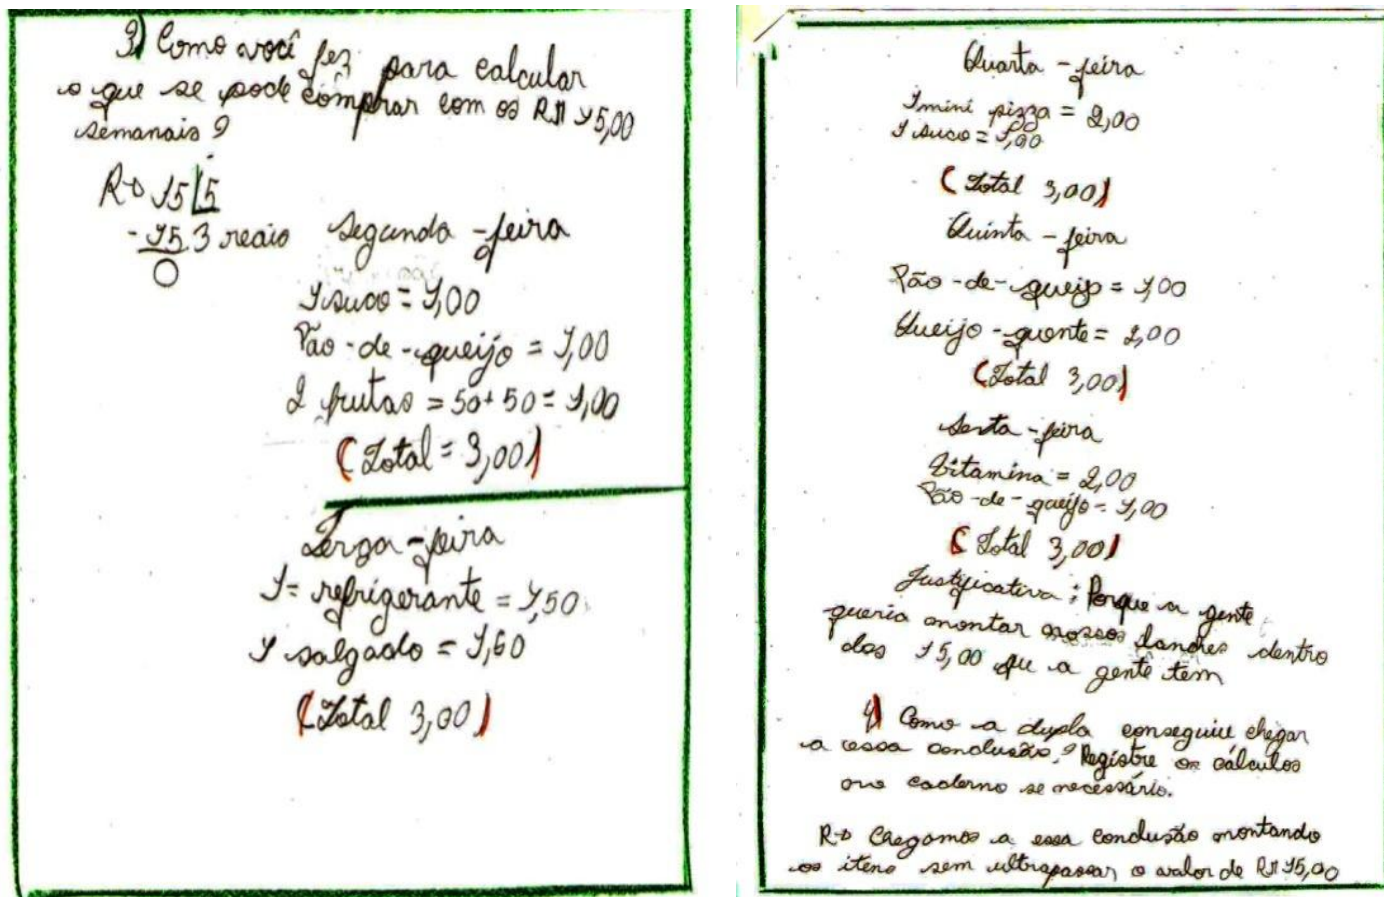 3) Como você fez para calcular
o que se pode comprar com os R$ 15,00
semanais?
R→ 15 5
- 15 3 reais
0
Segunda-feira
1 suco = 1,00
Pão-de-queijo = 1,00
2 frutas = 50+50 = 1,00
(Total = 3,00)
Terça-feira
1 = refrigerante = 1,50
1 salgado = 1,60
(Total 3,00)
Quarta-feira
1 mini pizza = 2,00
1 suco = 1,00
(Total 3,00)
Quinta-feira
Pão-de-queijo = 1,00
Queijo-quente = 2,00
(Total 3,00)
Sexta-feira
Vitamina = 2,00
Pão-de-queijo = 1,00
(Total 3,00)
Justificativa: Porque a gente
queria montar nossos lanches dentro
dos 15,00 que a gente tem
4) Como a dupla conseguiu chegar
a essa conclusão? Registre os cálculos
no caderno se necessário.
R→ Chegamos a essa conclusão montando
os itens sem ultrapassar o valor de R$ 15,00